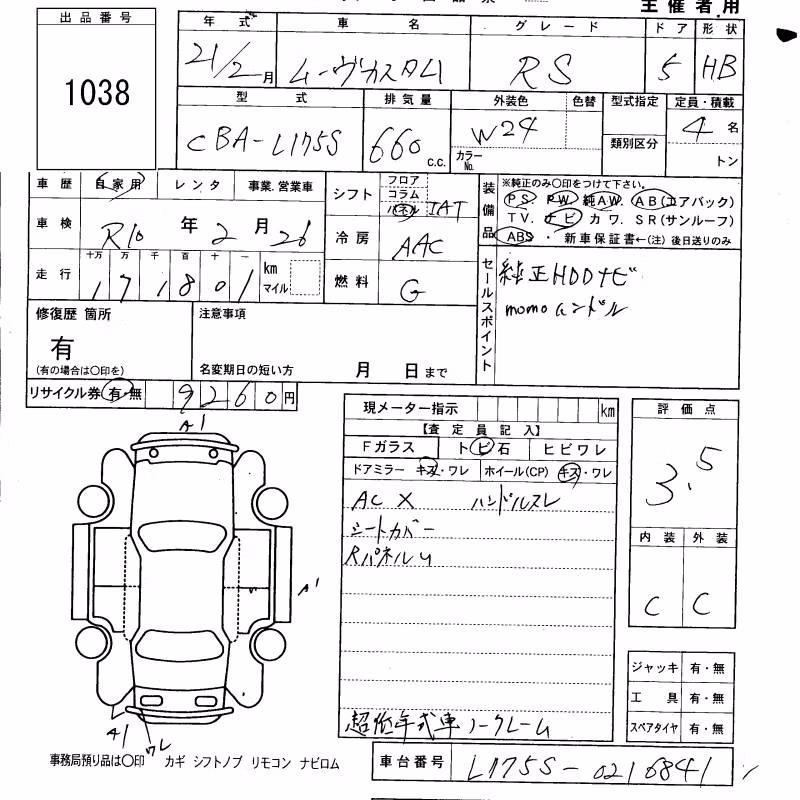 主催者用
出品番号
1038
年式 車名 グレード ドア 形状
21/2月 ムーヴカスタム RS 5 HB
型式 排気量 外装色 色替 型式指定 定員・積載
CBA-L175S 660 c.c. W24 カラーNo. 類別区分 4名 トン
車歴 自家用 レンタ 事業.営業車
車検 R10年2月26
走行 十万 万 千 百 十 一 km マイル
171801
シフト フロア コラム パネル IAT
冷房 AAC
燃料 G
装備品 ※純正のみ〇印をつけて下さい。
PS PW 純AW. AB(エアバック)
TV. ナビ カワ. SR(サンルーフ)
ABS ・ 新車保証書←(注) 後日送りのみ
セールスポイント
純正HDDナビ
momoハンドル
修復歴 箇所
有
(有の場合は〇印を)
注意事項
名変期日の短い方 月 日まで
リサイクル券 有・無 9260円
現メーター指示 km
【査定員記入】
Fガラス トビ石 ヒビワレ
ドアミラー キズ・ワレ ホイール(CP) キズ・ワレ
AC X ハンドルスレ
シートカバー
RパネルU
超低年式車ノークレーム
評価点
3.5
内装 外装
C C
A1
A'
A1
ワレ
ジャッキ 有・無
工具 有・無
スペアタイヤ 有・無
事務局預り品は〇印 カギ シフトノブ リモコン ナビロム
車台番号 L175S-0216841